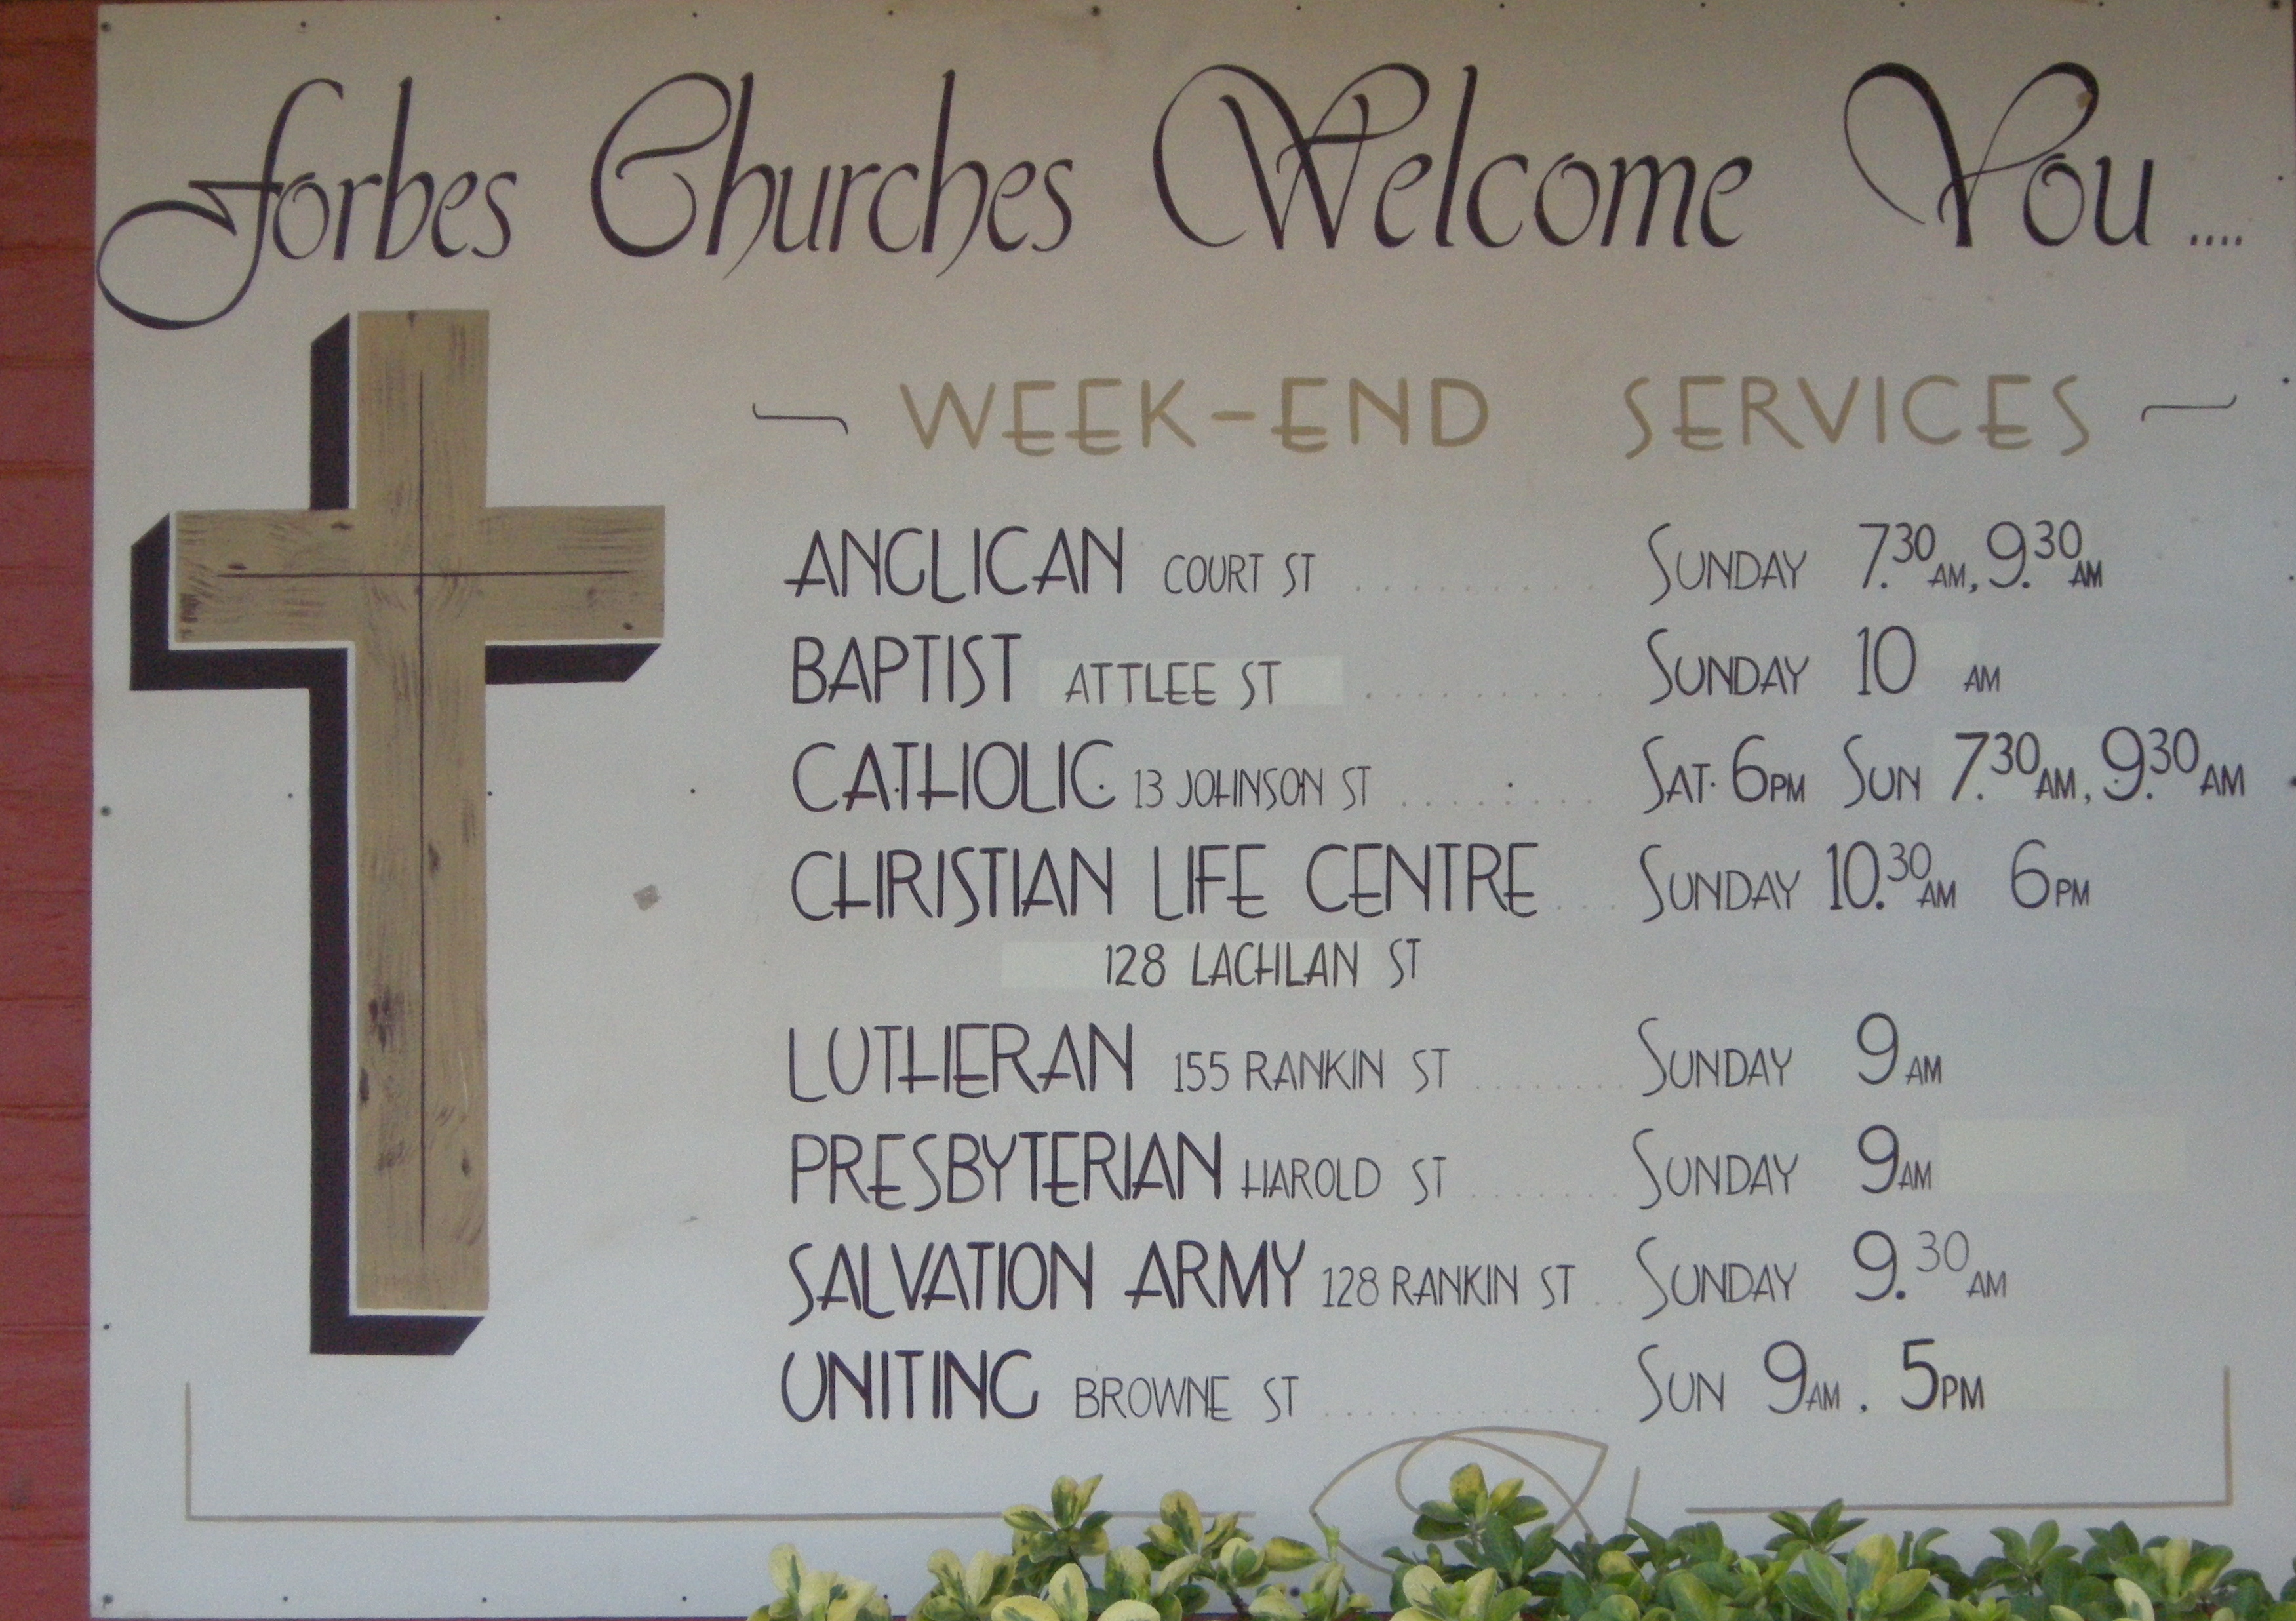 Forbes Churches Welcome You ....
WEEK-END SERVICES
ANGLICAN COURT ST .......... SUNDAY 7.30 AM, 9.30 AM
BAPTIST ATTLEE ST .......... SUNDAY 10 AM
CATHOLIC 13 JOHNSON ST .......... SAT. 6PM SUN 7.30 AM, 9.30 AM
CHRISTIAN LIFE CENTRE ... SUNDAY 10.30 AM 6PM
128 LACHLAN ST
LUTHERAN 155 RANKIN ST ....... SUNDAY 9 AM
PRESBYTERIAN HAROLD ST ....... SUNDAY 9AM
SALVATION ARMY 128 RANKIN ST .. SUNDAY 9.30 AM
UNITING BROWNE ST ............. SUN 9AM . 5PM